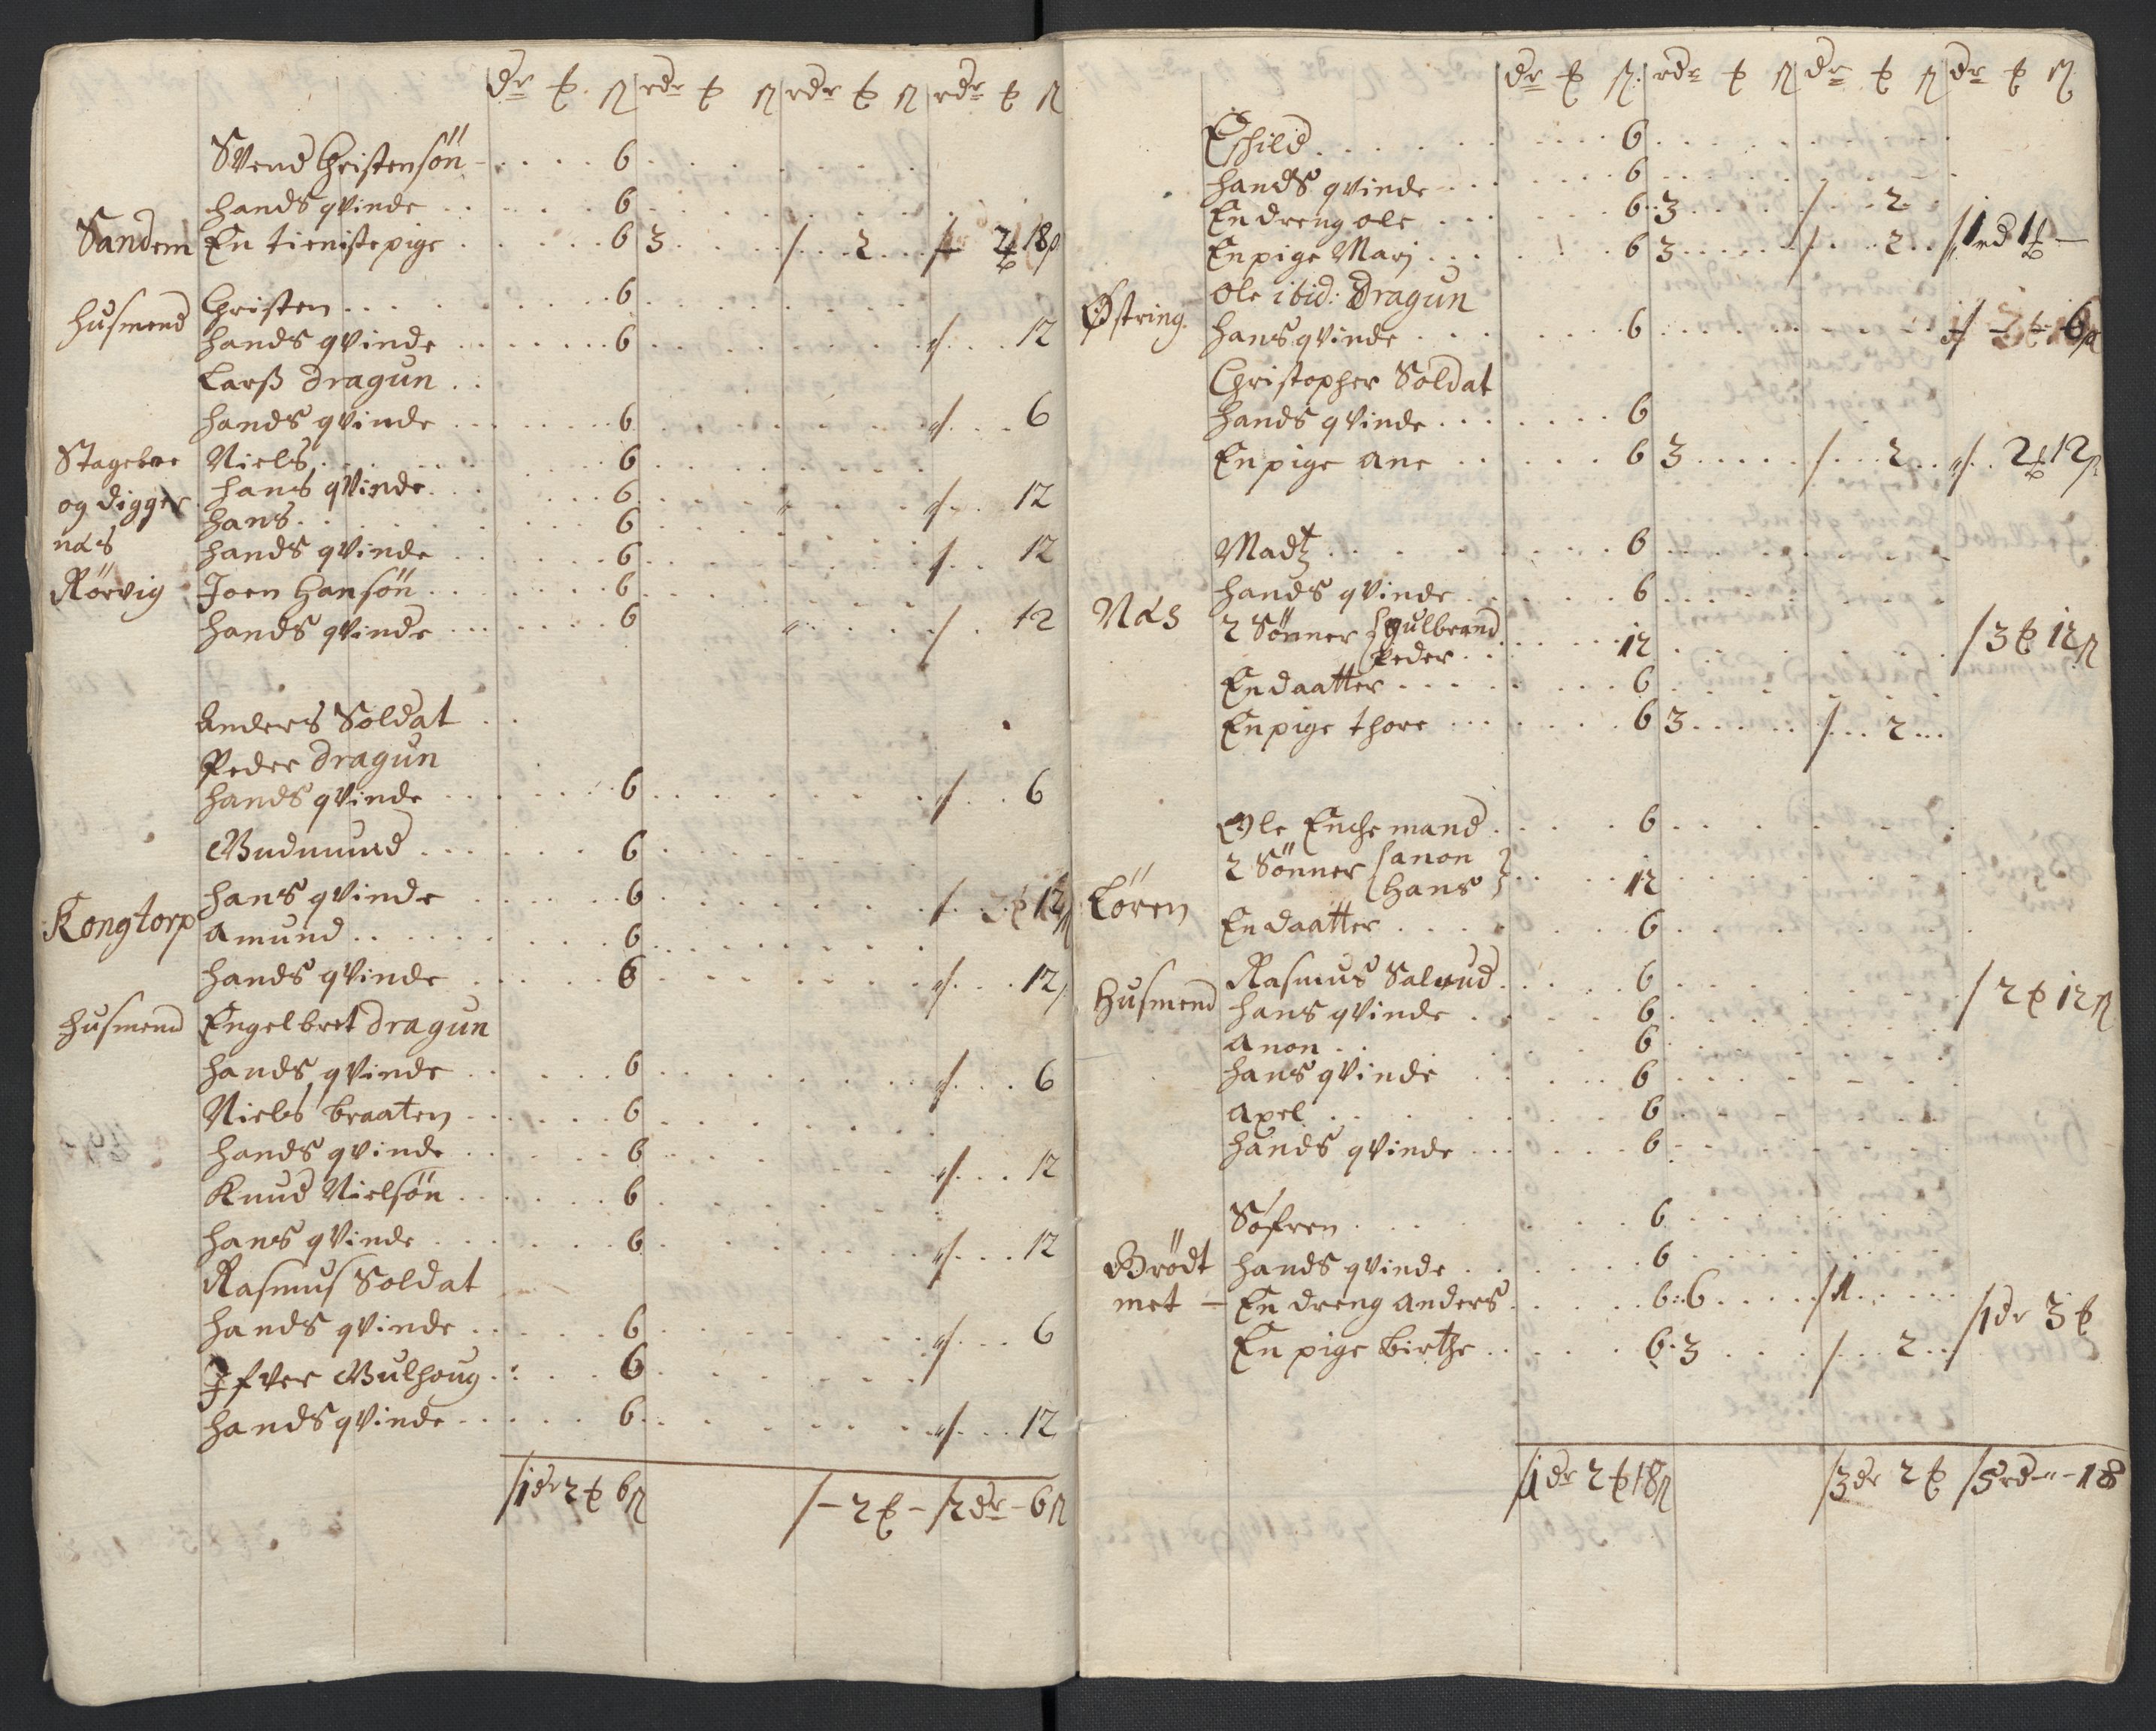 dr ₺ ß rdr ₺ ß rdr ₺ ß rdr ₺ ß
Svend Christensön 6
hands qvinde 6
Sandem En tienistepige 6 3 / 2 / 2 ₺ 18 ß
husmend Christen 6
hands qvinde 6 / 12
Larß dragun
hands qvinde 6 / 6
Stageboe Niels 6
og digger hans qvinde 6 / 12
næs hans 6
hands qvinde 6 / 12
Rörvig Joen Hansön 6
hands qvinde 6 / 12
Anders Soldat
Peder dragun
hands qvinde 6 / 6
Gudmund 6
hans qvinde 6 / 12 ß
Kongtorp Amund 6
hands qvinde 6 / 12
husmend Engelbret dragun
hands qvinde 6 / 6
Niels braaten 6
hands qvinde 6 / 12
Knud Nielsön 6
hans qvinde 6 / 12
Rasmus Soldat
hands qvinde 6 / 6
Ifver Gulhoug 6
hands qvinde 6 / 12
/1 dr 2 ₺ 6 ß / - 2 ₺ - /2 dr - 6 ß
dr ₺ ß rdr ₺ ß dr ₺ ß dr ₺ ß
Eschild 6
hands qvinde 6
En dreng ole 6 3 / 2
En pige Marj 6 3 / 2 / 1 rd 1 ₺ -
Ole ibid: dragun
Østring hans qvinde 6 / 6 ß
Christopher Soldat
hands qvinde 6
En pige ane 6 3 / 2 / 2 ₺ 12 ß
Madtz 6
hands qvinde 6
Næs 2 Sönner { gulbrand
Peder 12 / 3 ₺ 12 ß
En daatter 6
En pige thore 6 3 / 2
Ole Enchemand 6
2 Sönner { anon
Hans } 12
Lören En daatter 6
Husmend Rasmus Salmud 6
hans qvinde 6 / 2 ₺ 12 ß
Anon 6
hans qvinde 6
Axel 6
hands qvinde 6
Söfren 6
Grödt hands qvinde 6
met - En dreng Anders 6 6 / 1
En pige birthe 6 3 / 2 / 1 dr 3 ₺
/1 dr 2 ₺ 18 ß /3 dr 2 ₺ /5 rd - " - 18